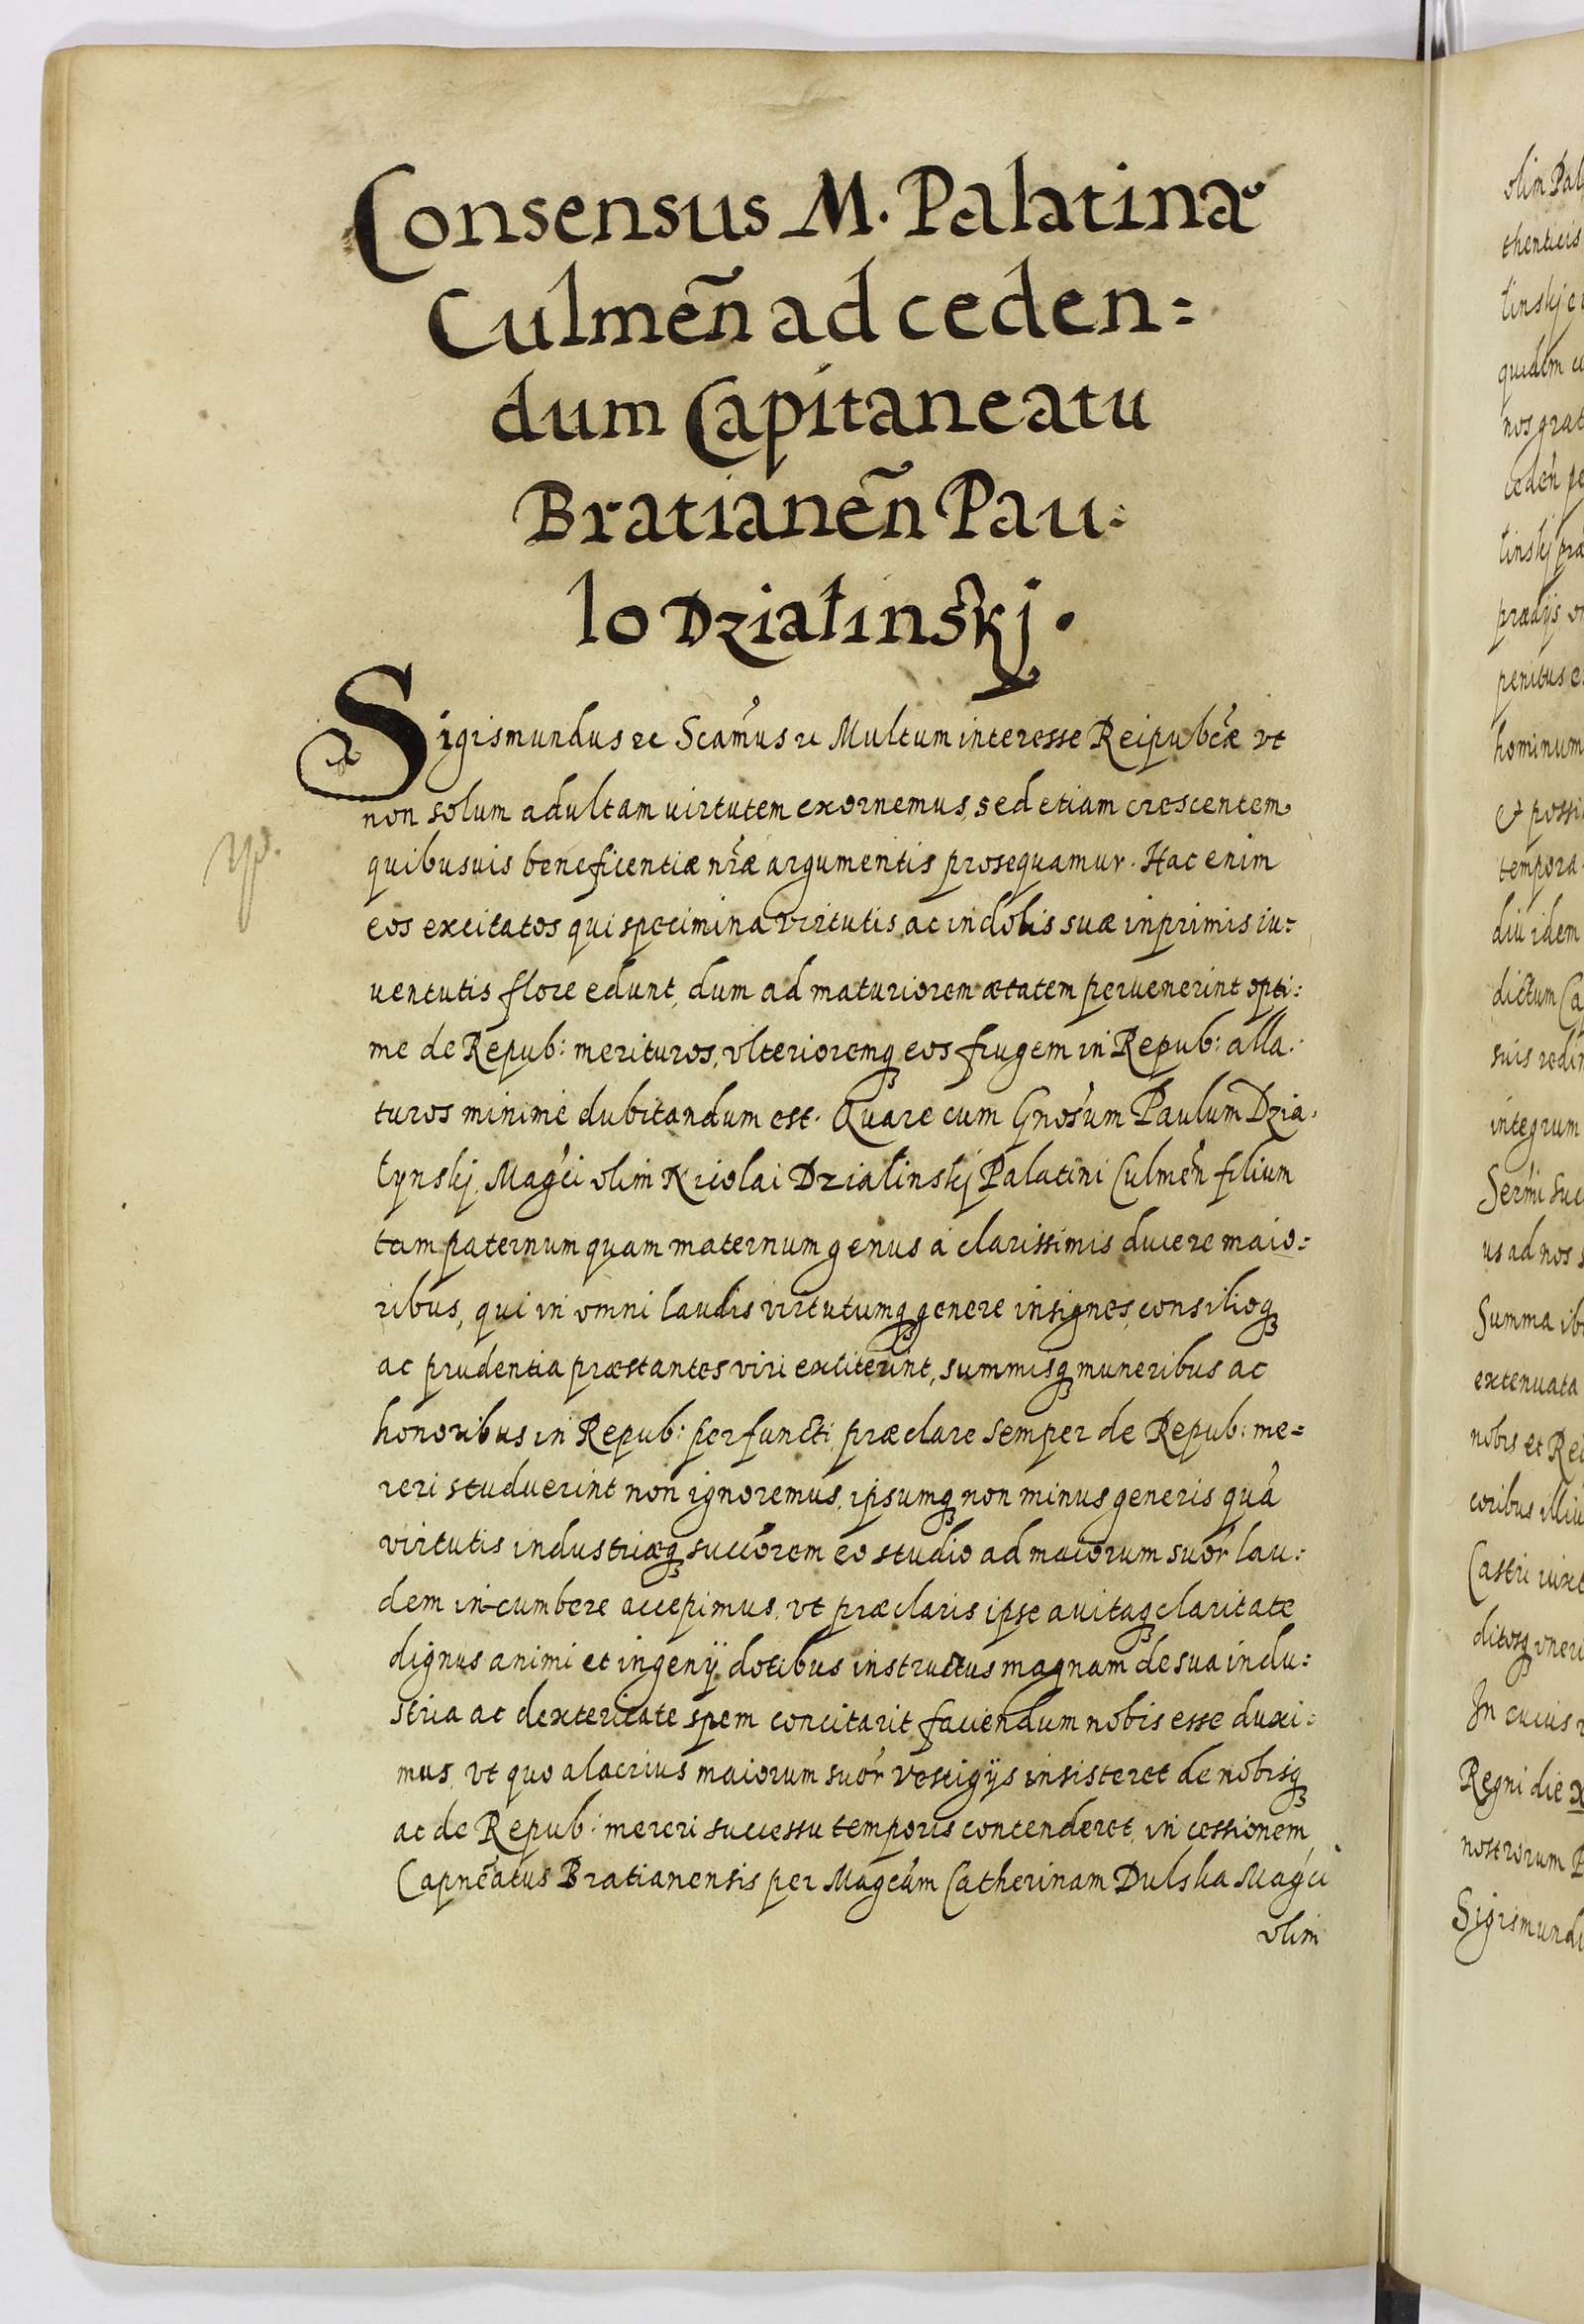 Consensus M. Palatinæ
Culmeñ ad ceden=
dum Capitaneatu
Bratianeñ Pau:
lo Działinskj.
Sigismundus etc Scam̃us etc Multum interesse Reipub̃cæ vt
non solum adultam uirtutem exornemus, sed etiam crescentem
quibusuis beneficentiæ nr̃æ argumentis prosequamur. Hac enim
eos excitatos qui specimina virtutis ac indolis suæ inprimis iu=
uentutis flore edunt, dum ad maturiorem ætatem peruenerint opti:
me de Repub: merituros, vlterioremq́ eos frugem in Repub: alla:
turos minimè dubitandum est. Quare cum Gnos̃um Paulum Dzia:
łynskj, Mag̃ci olim Nicolai Działinskj Palatini Culmeñ filium
tam paternum quam maternum genus à clarissimis ducere maio=
ribus, qui in omni laudis virtutumq́ genere insignes, consilioq́
ac prudentia præstantes viri extiterint, summisq́ muneribus ac
honoribus in Repub: perfuncti, præclare semper de Repub: me=
reri studuerint non ignoremus, ipsumq́ non minus generis quã
virtutis industriæq́ succ̃orem eo studio ad maiorum suor̃ lau:
dem incumbere accepimus, vt præclaris ipse auitaq́ claritate
dignus animi et ingenij dotibus instructus magnam de sua indu:
stria ac dexteritate spem concitarit, faciendum nobis esse duxi:
mus, vt quo alacrius maiorum suor̃ vestigijs insisteret de nobisq́
ac de Repub: mereri successu temporis contenderet, in cessionem
Capnẽatus Bratianensis per Magc̃am Catherinam Dulska Mag̃ci
olim